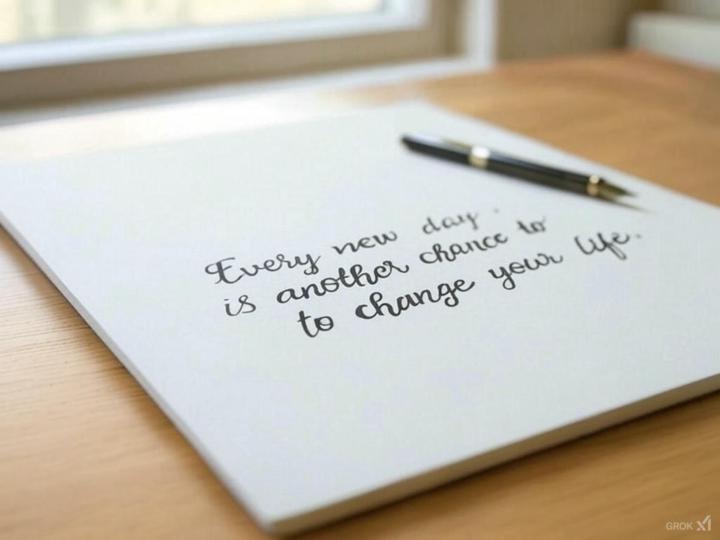 Every new day.
is another chance to
to change your life.
GROK